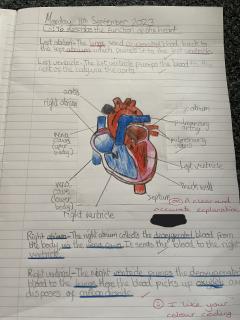 Monday 11th September 2023
L.O: To describe the function of the heart
Left atrium - The lungs send oxygenated blood back to
the left atrium which pumps it to the left ventricle.
Left ventricle - The left ventricle pumps the blood to the
rest of the body via the aorta.
aorta
right atrium
vena
cava
(upper
body)
vena
cava
(lower
body)
right ventricle
l atrium
pulmonary
artery
pulmonary
vein
Left ventricle
muscle wall
septum
A clear and
accurate explanation
Right atrium - The right atrium collects the deoxygenated blood from
the body via the vena cava. It sends the blood to the right
ventricle.
Right ventricle - The right ventricle pumps the deoxygenated
blood to the lungs. Here the blood picks up oxygen and
disposes of carbon dioxide.
I like your
colour coding